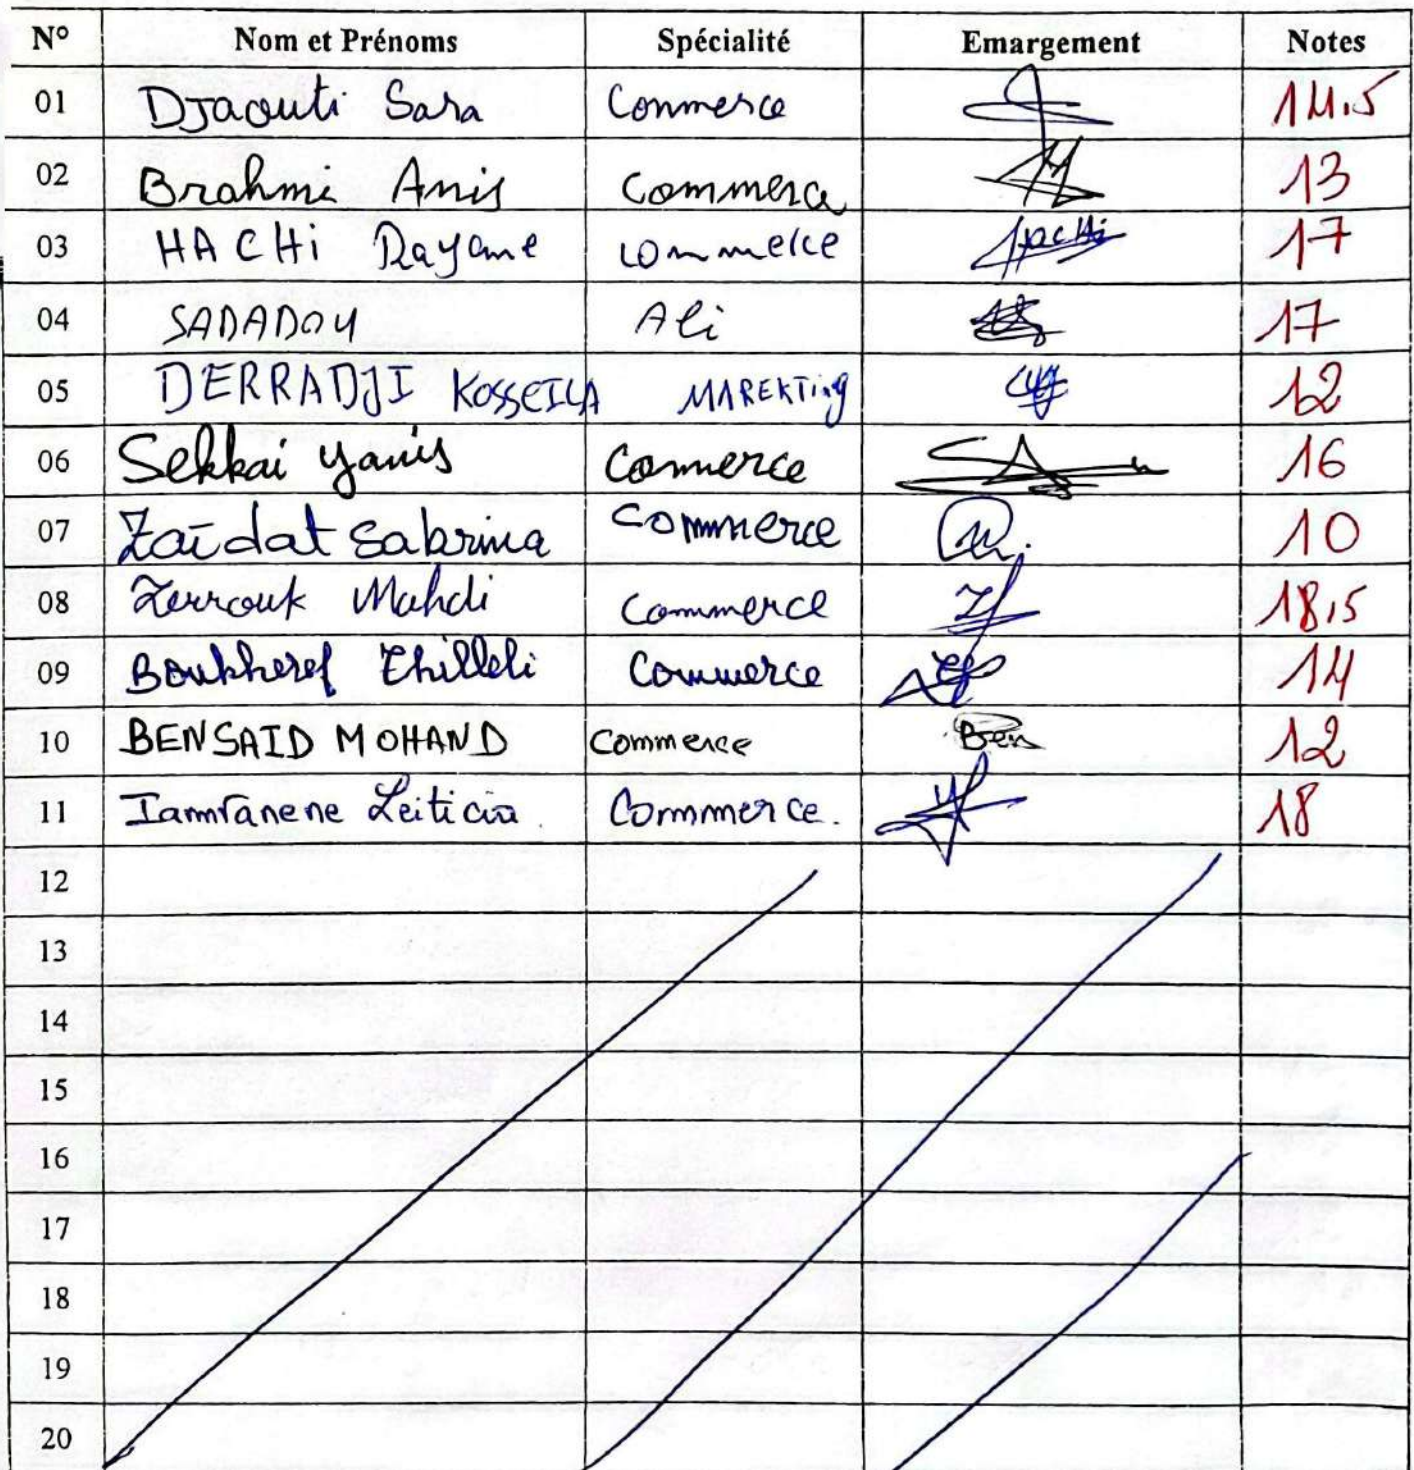 N° Nom et Prénoms Spécialité Emargement Notes
01 Djaouti Sara Commerce 14.5
02 Brahmi Anis Commerce 13
03 HACHi Rayane commerce HACHi 17
04 SADADOU Ali 17
05 DERRADJI KOSSEILA MAREKTing 12
06 Sekkai Yanis Commerce 16
07 Zaïdat Sabrina Commerce 10
08 Zerrouk Mahdi Commerce 18,5
09 Boukheref Thilleli Commerce 14
10 BENSAID MOHAND Commerce Ben 12
11 Iamranene Leiticia. Commerce. 18
12
13
14
15
16
17
18
19
20